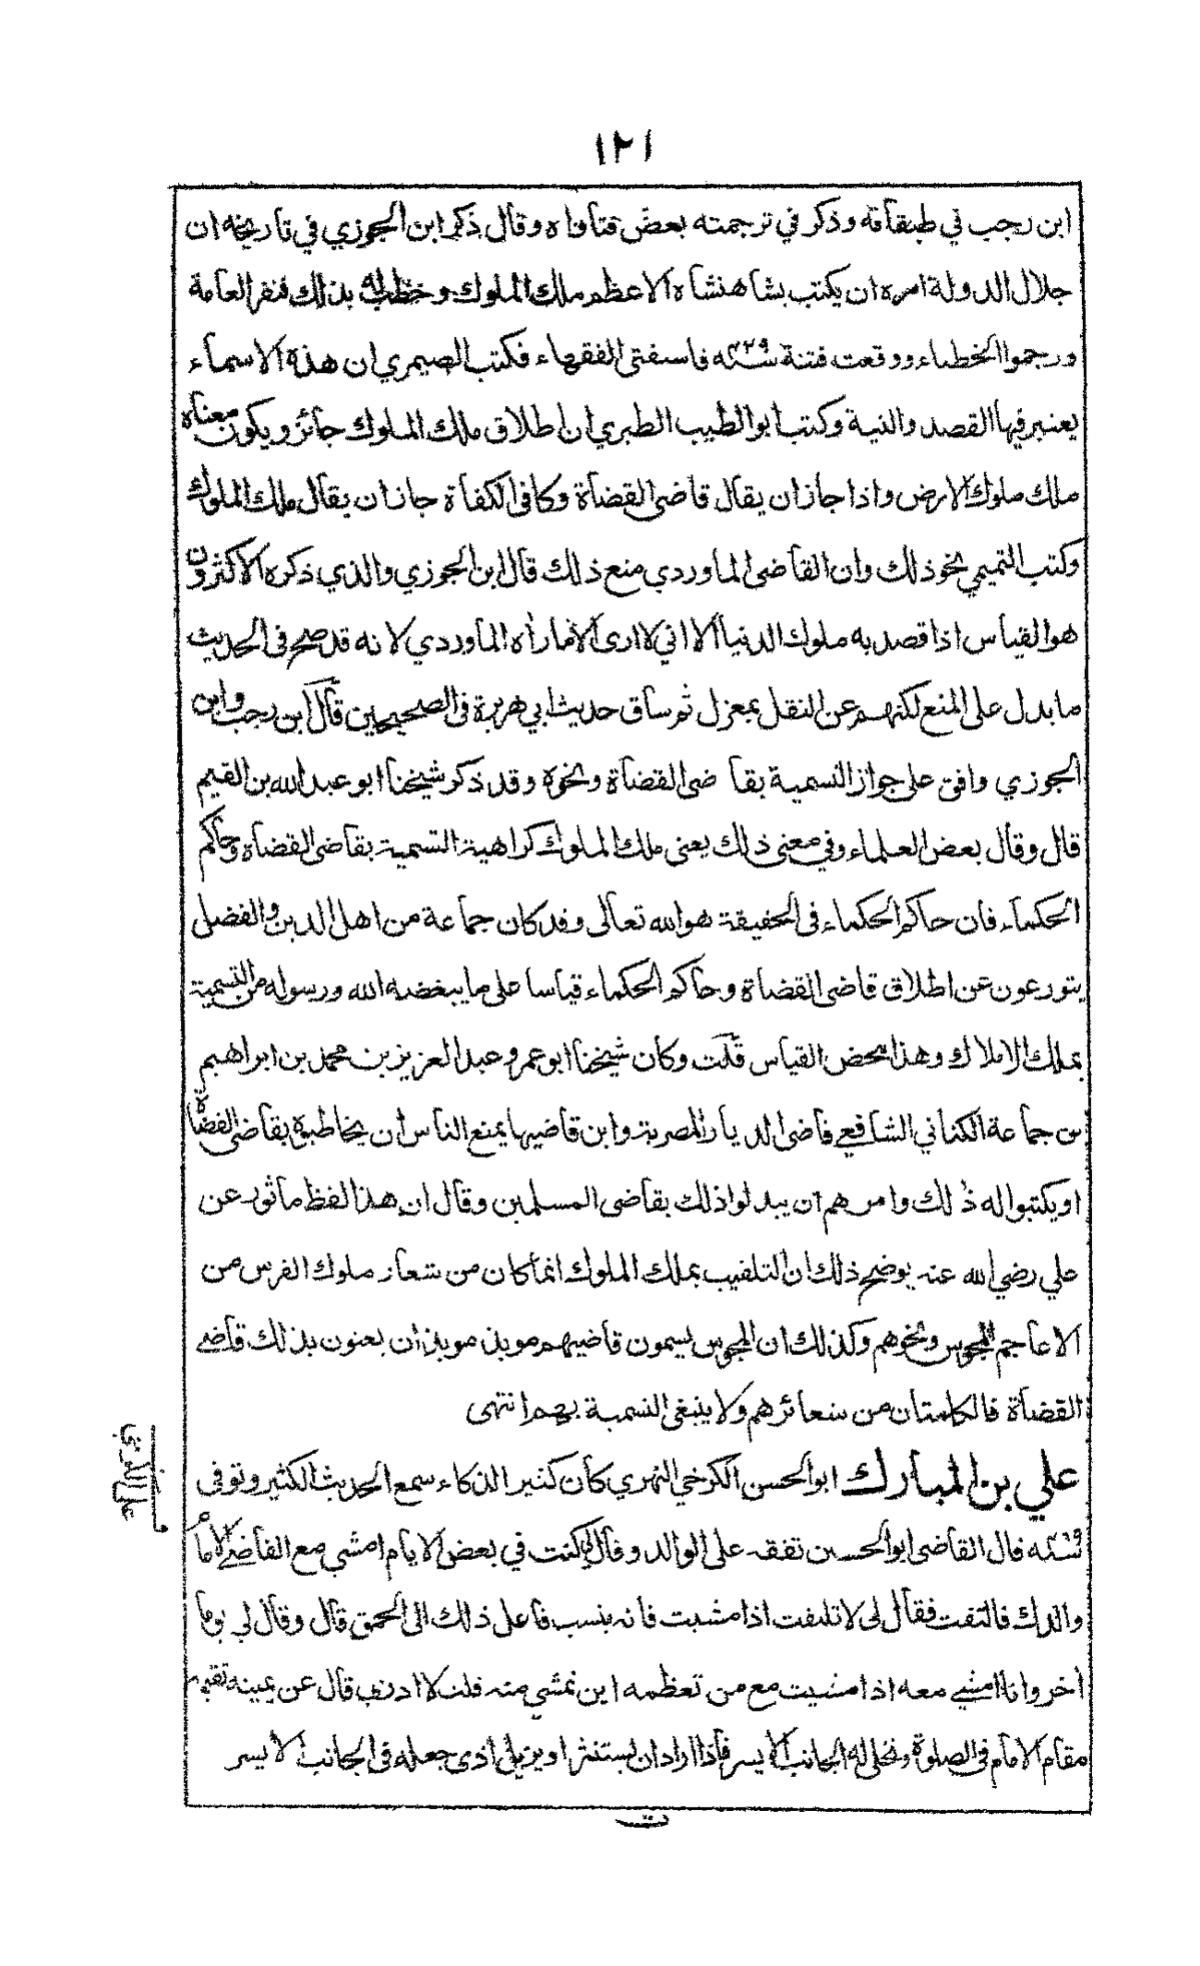 ١٢١
ابن رجب في طبقاته وذكر في ترجمته بعض فتاواه وقال ذكر ابن الجوزي في تاريخه ان
جلال الدولة امره ان يكتب بشاهنشاه الاعظم ملك الملوك وخطب له بذلك فنفر العامة
ورجموا الخطباء ووقعت فتنة سنة ٤٢٩ فاستفتى الفقهاء فكتب الصيمري ان هذه الاسماء
يعتبر فيها القصد والنية وكتب ابو الطيب الطبري ان اطلاق ملك الملوك جائز ويكون معناه
ملك ملوك الارض واذا جاز ان يقال قاضى القضاة وكافى الكفاة جاز ان يقال ملك الملوك
وكتب التميمي نحو ذلك وان القاضى الماوردي منع ذلك قال ابن الجوزي والذي ذكره الاكثرون
هو القياس اذا قصد به ملوك الدنيا الا اني لا ارى الا ما رآه الماوردي لانه قد صح فى الحديث
ما يدل على المنع لكنهم عن النقل بمعزل ثم ساق حديث ابي هريرة فى الصحيحين قال ابن رجب وابن
الجوزي وافق على جواز التسمية بقاضى القضاة ونحوه وقد ذكر شيخنا ابو عبد الله بن القيم
قال وقال بعض العلماء وفي معنى ذلك يعنى ملك الملوك كراهية التسمية بقاضى القضاة وحاكم
الحكماء فان حاكم الحكماء فى الحقيقة هو الله تعالى وقد كان جماعة من اهل الدين والفضل
يتورعون عن اطلاق قاضى القضاة وحاكم الحكماء قياسا على ما يبغضه الله ورسوله من التسمية
بملك الاملاك وهذا محض القياس قلت وكان شيخنا ابو عمرو عبد العزيز بن محمد بن ابراهيم
بن جماعة الكناني الشافعي قاضى الديار المصرية وابن قاضيها يمنع الناس ان يخاطبوه بقاضى القضاة
او يكتبوا له ذلك وامرهم ان يبدلوا ذلك بقاضى المسلمين وقال ان هذا لفظ ماثور عن
علي رضي الله عنه يوضح ذلك ان التلقيب بملك الملوك انما كان من شعار ملوك الفرس من
الاعاجم المجوس ونحوهم وكذلك ان المجوس يسمون قاضيهم موبذ موبذان يعنون بذلك قاضي
القضاة فالكلمتان من شعائرهم ولا ينبغى التسمية بهم انتهى
علي بن المبارك ابو الحسن الكرخي النهري كان كثير الذكاء سمع الحديث الكثير وتوفى
سنة قال القاضى ابو الحسين تفقه على الوالد وقال لي كنت في بعض الايام امشي مع القاضي الامام
والدك فالتفت فقال لى لا تلتفت اذا مشيت فانه ينسب فاعل ذلك الى الحمق قال وقال لي يوما
اخر وانا امشي معه اذا مشيت مع من تعظمه اين تمشي منه قلت لا ادري قال عن يمينه تقيمه
مقام الامام فى الصلوة وتخلى له الجانب الايسر فاذا اراد ان يستنثر او يزيل اذى جعله فى الجانب الايسر